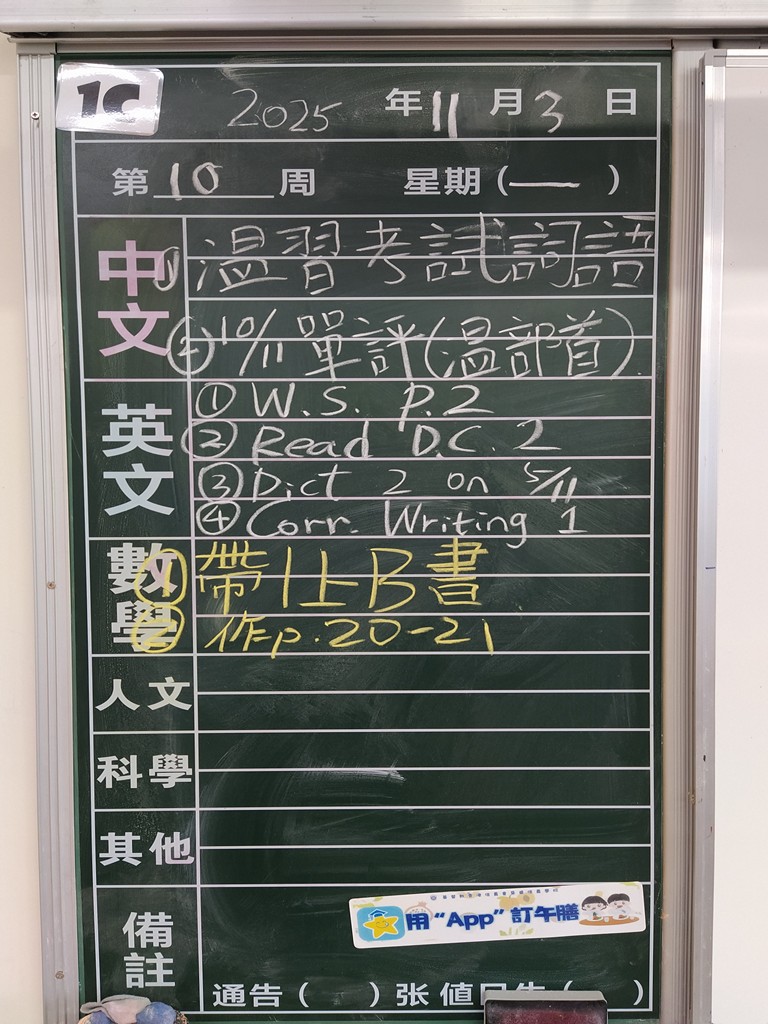 1C 2025 年 11 月 3 日
第 10 周 星期 (一)
中文
① 溫習考試詞語
② 10/11 單評(溫部首)
英文
① W.S. P.2
② Read D.C. 2
③ Dict 2 on 5/11
④ Corr. Writing 1
數學
① 帶1上B書
② 作p.20-21
人文
科學
其他
備註
用“App”訂午膳
通告 ( ) 张 值日生 ( )